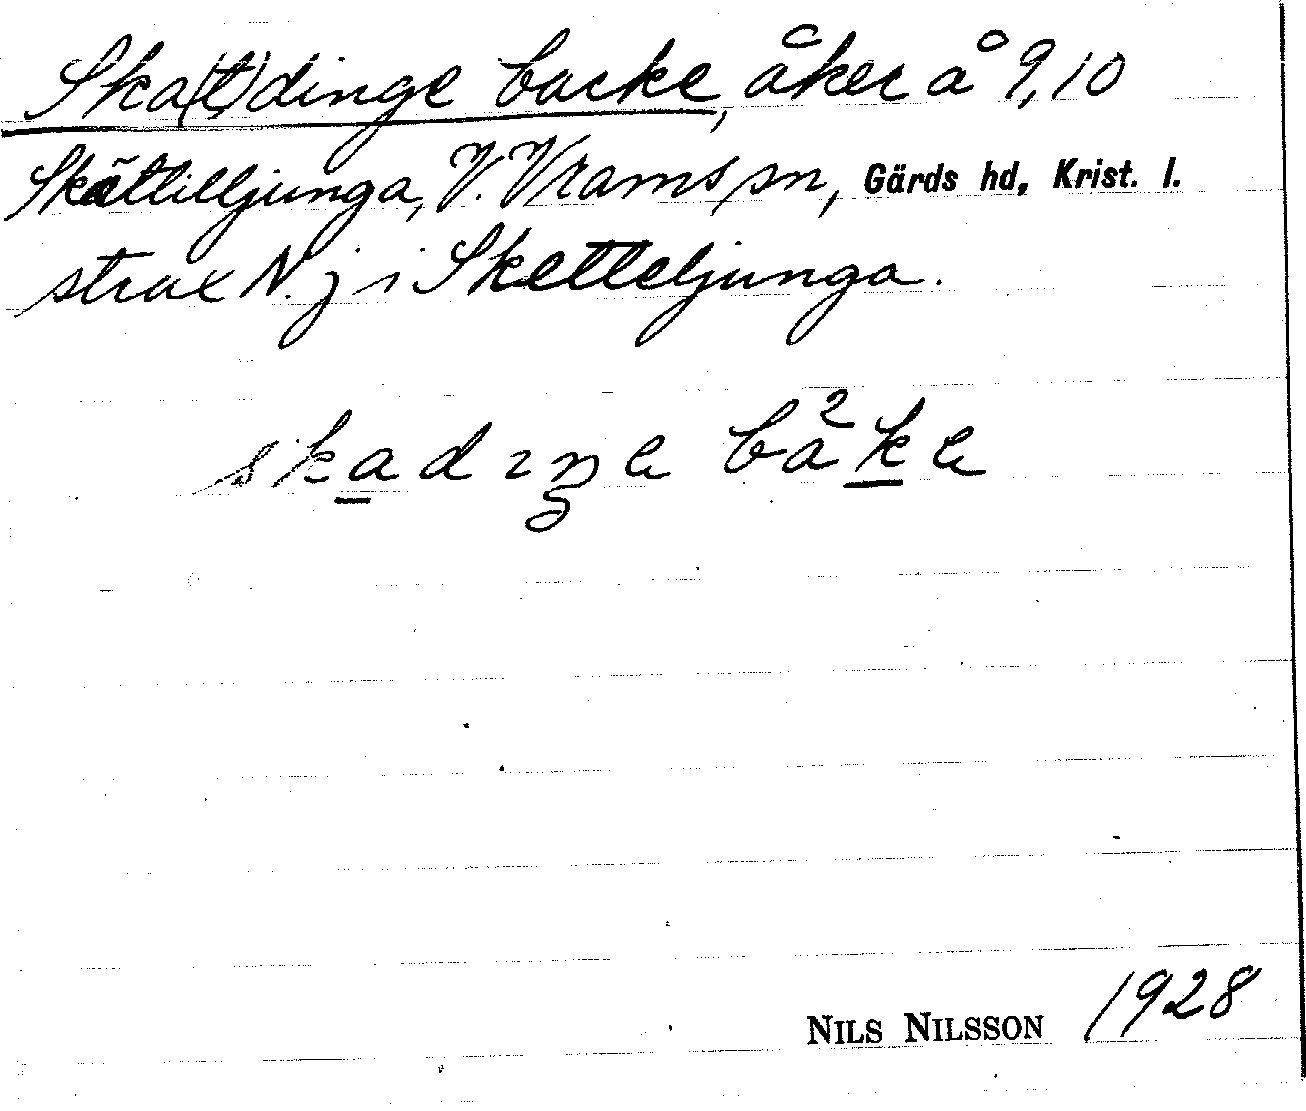 Ska(t)dinge backe, åker å 9,10
Skättilljunga, V. Vrams sn, Gärds hd, Krist. l.
strax N. j i Sketteljunga.
skadıŋe båke
NILS NILSSON 1928